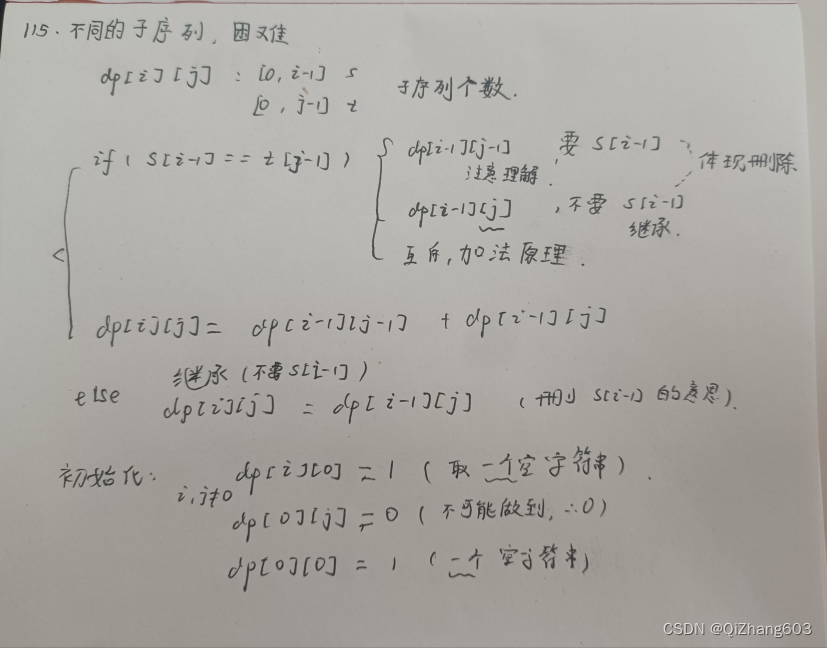 115. 不同的子序列, 困难
dp[i][j] : [0, i-1] s
[0, j-1] t 子序列个数.
if( s[i-1] == t[j-1] ) { dp[i-1][j-1] , 要 s[i-1]
注意理解. 体现删除
dp[i-1][j] , 不要 s[i-1]
继承.
互斥, 加法原理.
dp[i][j] = dp[i-1][j-1] + dp[i-1][j]
继承 (不要s[i-1])
else dp[i][j] = dp[i-1][j] (删 s[i-1] 的意思).
初始化: dp[i][0] = 1 ( 取一个空字符串 ).
i, j≠0
dp[0][j] = 0 ( 不可能做到, ∴0)
dp[0][0] = 1 ( 一个 空字符串)
CSDN @QiZhang603